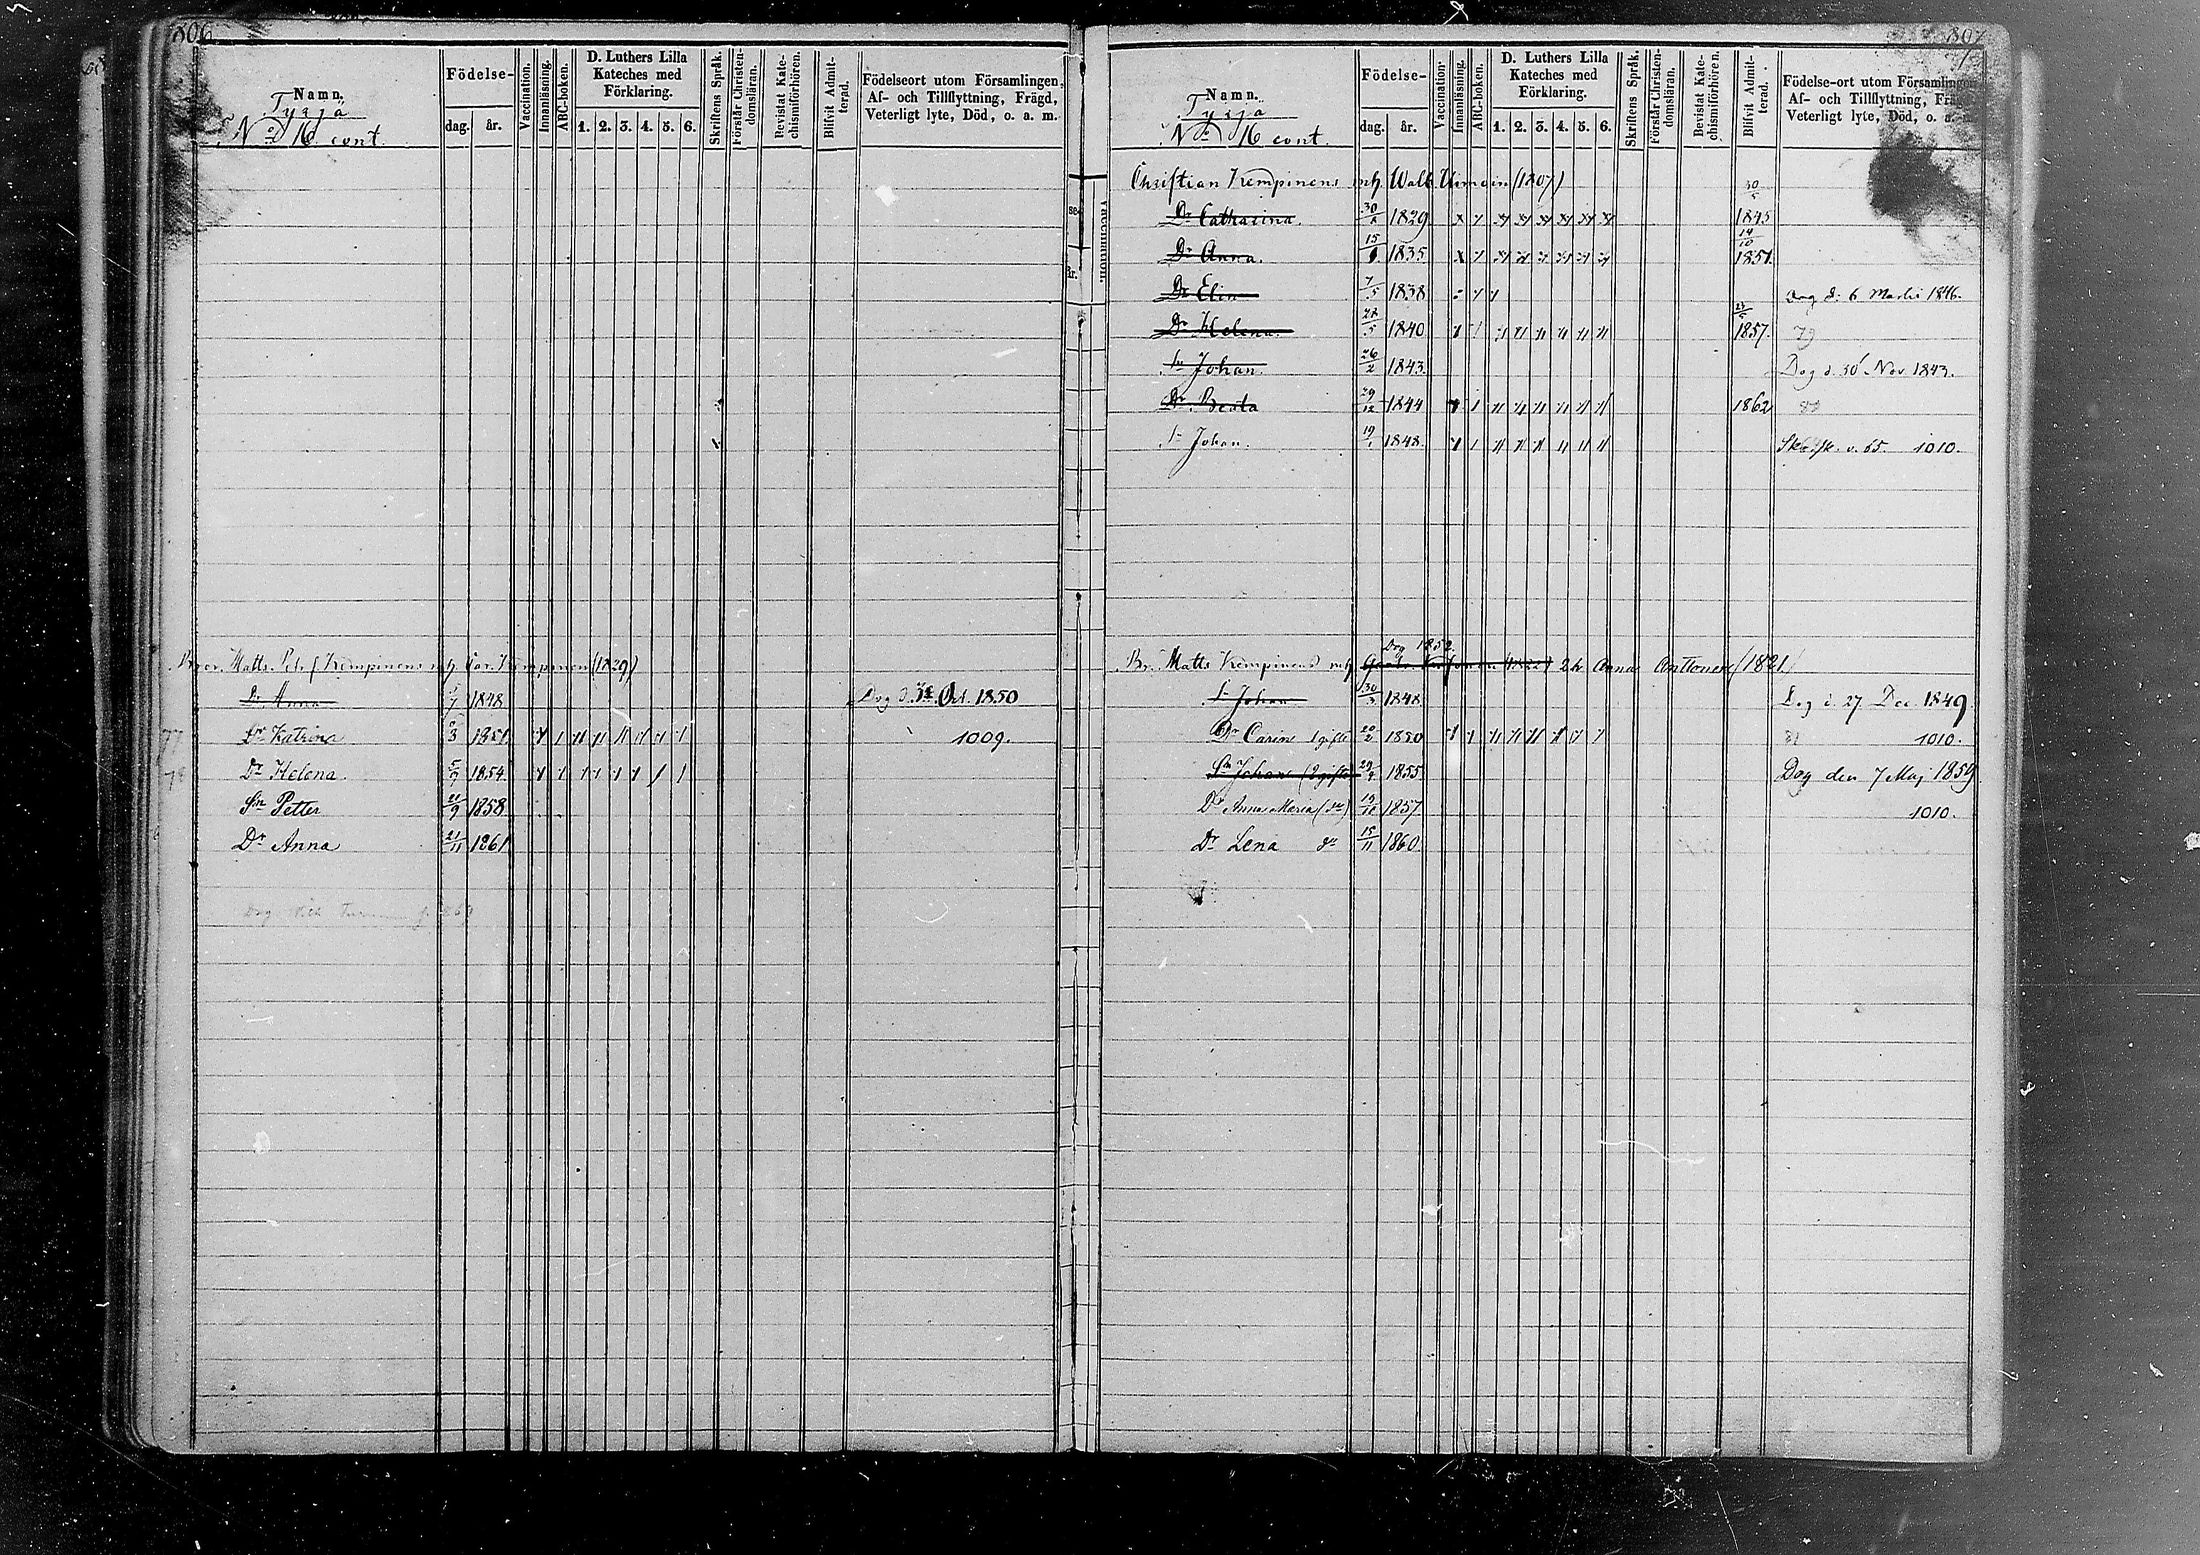 806
Namn.
Tyrjä
No 16 cont.
Födelse-
dag. år.
Vaccination.
Innanläsning.
ABC-boken.
D. Luthers Lilla
Kateches med
Förklaring.
1. 2. 3. 4. 5. 6.
Skriftens Språk.
Förstår Christen-
domsläran.
Bevistat Kate-
chismiförhören.
Blifvit Admit-
terad.
Födelseort utom Församlingen,
Af- och Tillflyttning, Frägd,
Veterligt lyte, Död, o. a. m.
Matts Kempinens Kempinen (1829)
Dr Anna 1848 Dog Oct. 1850
77 Dr Katrina 3 1851 1009.
78 Dr Helena 5/9 1854
Sn Petter 21/9 1858
Dr Anna 21/11 1861
Dog
807
Namn.
Tyrjä
No 16 cont.
Födelse-
dag. år.
Vaccination
Innanläsning.
ABC-boken.
D. Luthers Lilla
Kateches med
Förklaring.
1. 2. 3. 4. 5. 6.
Skriftens Språk.
Förstår Christen-
domsläran.
Bevistat Kate-
chismiförhören.
Blifvit Admit-
terad.
Födelse-ort utom Församlingen
Af- och Tillflyttning,
Veterligt lyte, Död, o. a.
Christian Kempinens mh. Walb. (1807)
Dr Catharina 30/8 1829 30/5 1845
Dr Anna 15 1835 14/10 1851
Dr Elin 7/5 1838 Dog d. 6 Martii 1846.
Dr Helena 28/5 1840 1857. 79
Sn Johan 26/2 1843 Dog d. 30 Nov 1843.
Dr Beata 29/12 1844 1862 80
Sn Johan. 19/1 1848 v. 65. 1010.
Dog 1852
Br. Matts Kempinens mh 2h Anna Anttonen (1821)
Sn Johan 30/3 1848 Dog d. 27 Dec. 1849
Dr Carin 1 gifte 22/2 1850 81 1010.
Sn Johan (2 gifte) 29/9 1855 Dog den 7 Maj 1859
Dr Anna Maria 1857 1010.
Dr Lena do 15/11 1860